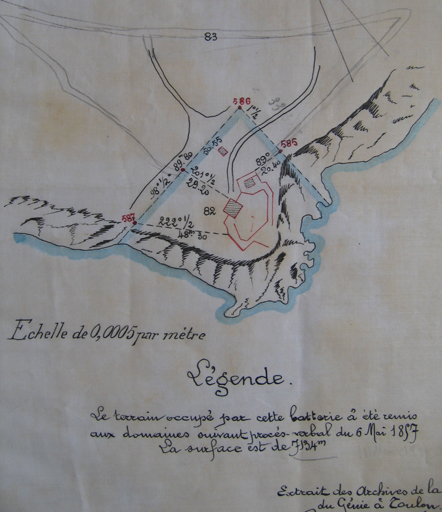 83
586
1° ½
585
89° 80
50.55
89°
20.40
98° ½
201° ½
28.20
82
587
222° ½
48m 30
Echelle de 0,0005 par mètre
Légende.
Le terrain occupé par cette batterie à été remis
aux domaines suivant procès-verbal du 6 Mai 1857
La surface est de 7134m
Extrait des Archives de la
du Génie à Toulon